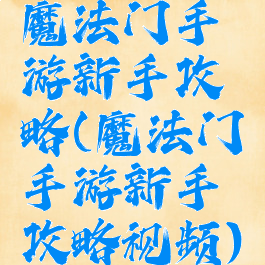 魔法门手
游新手攻
略(魔法门
手游新手
攻略视频)